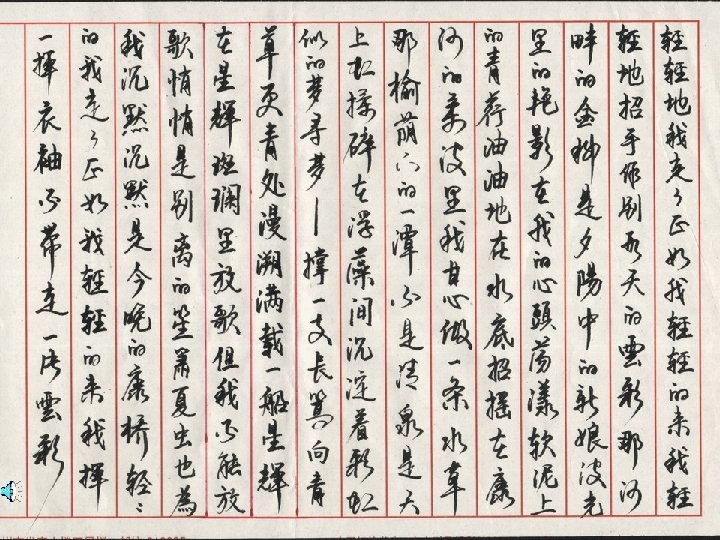 輕輕地我走了正如我輕輕的来我輕
輕地招手作别西天的雲彩那河
畔的金柳是夕陽中的新娘波光
里的艳影在我的心頭荡漾软泥上
的青荇油油地在水底招摇在康
河的柔波里我甘心做一条水草
那榆荫下的一潭不是清泉是天
上虹揉碎在浮藻间沉淀着彩虹
似的梦寻梦—撑一支长篙向青
草更青处漫溯满载一船星輝
在星輝斑斓里放歌但我不能放
歌悄悄是别离的笙箫夏虫也為
我沉默沉默是今晚的康桥輕々
的我走了正如我輕輕的来我揮
一揮衣袖不带走一片雲彩